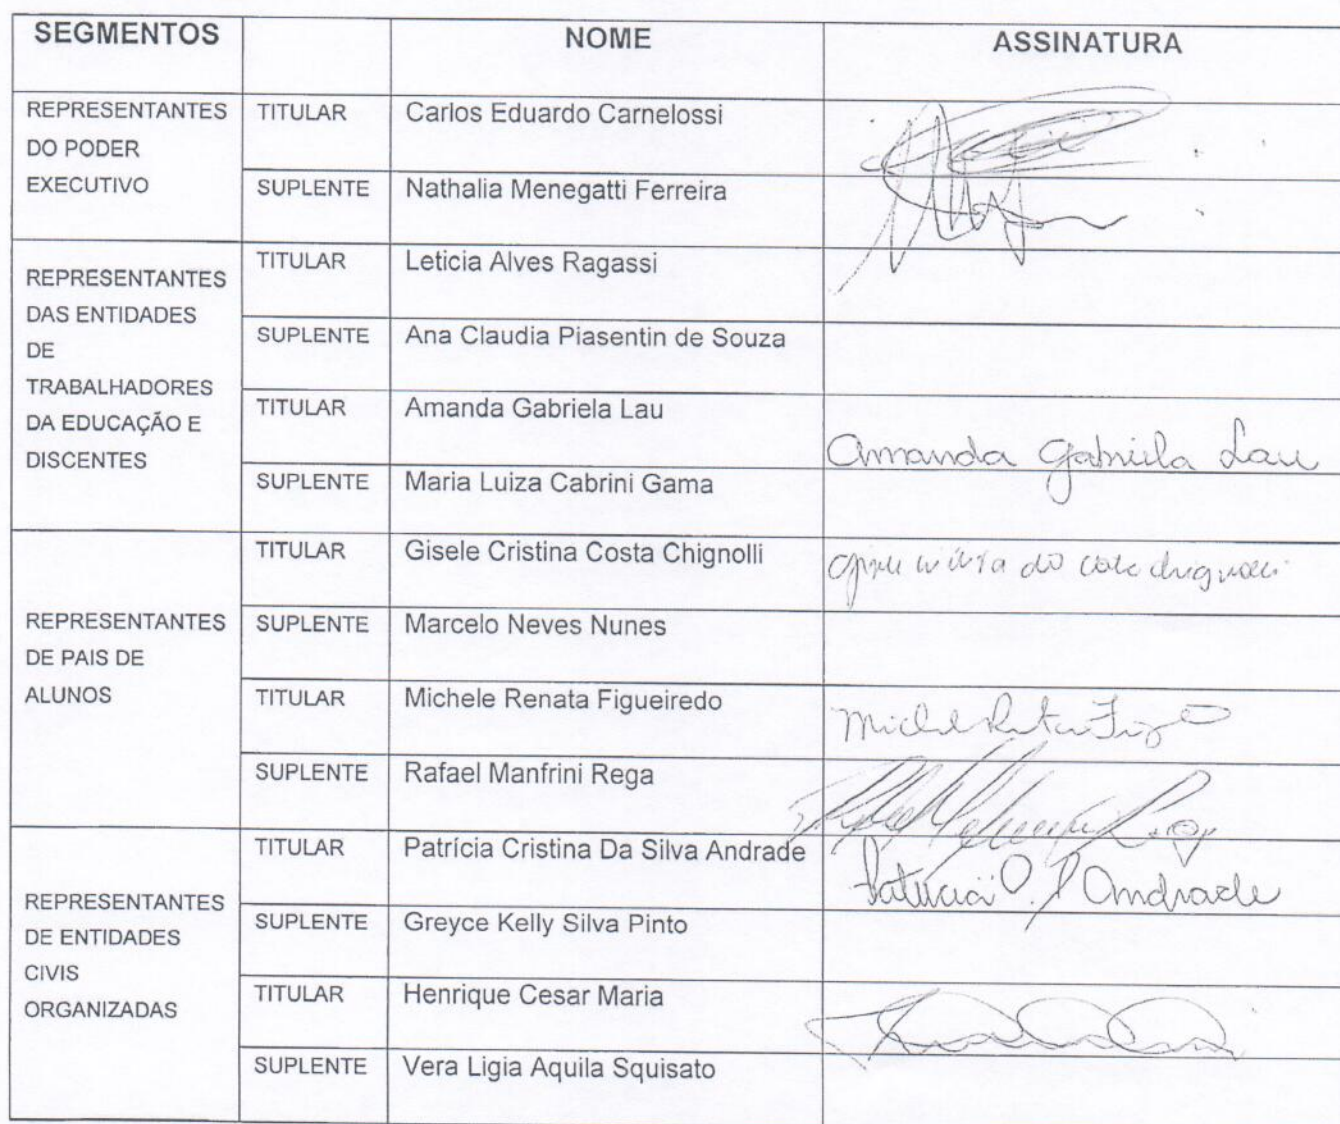 SEGMENTOS NOME ASSINATURA
REPRESENTANTES
DO PODER
EXECUTIVO
TITULAR Carlos Eduardo Carnelossi
SUPLENTE Nathalia Menegatti Ferreira
REPRESENTANTES
DAS ENTIDADES
DE
TRABALHADORES
DA EDUCAÇÃO E
DISCENTES
TITULAR Leticia Alves Ragassi
SUPLENTE Ana Claudia Piasentin de Souza
TITULAR Amanda Gabriela Lau Amanda Gabriela Lau
SUPLENTE Maria Luiza Cabrini Gama
REPRESENTANTES
DE PAIS DE
ALUNOS
TITULAR Gisele Cristina Costa Chignolli
SUPLENTE Marcelo Neves Nunes
TITULAR Michele Renata Figueiredo
SUPLENTE Rafael Manfrini Rega
REPRESENTANTES
DE ENTIDADES
CIVIS
ORGANIZADAS
TITULAR Patrícia Cristina Da Silva Andrade Patricia Andrade
SUPLENTE Greyce Kelly Silva Pinto
TITULAR Henrique Cesar Maria
SUPLENTE Vera Ligia Aquila Squisato